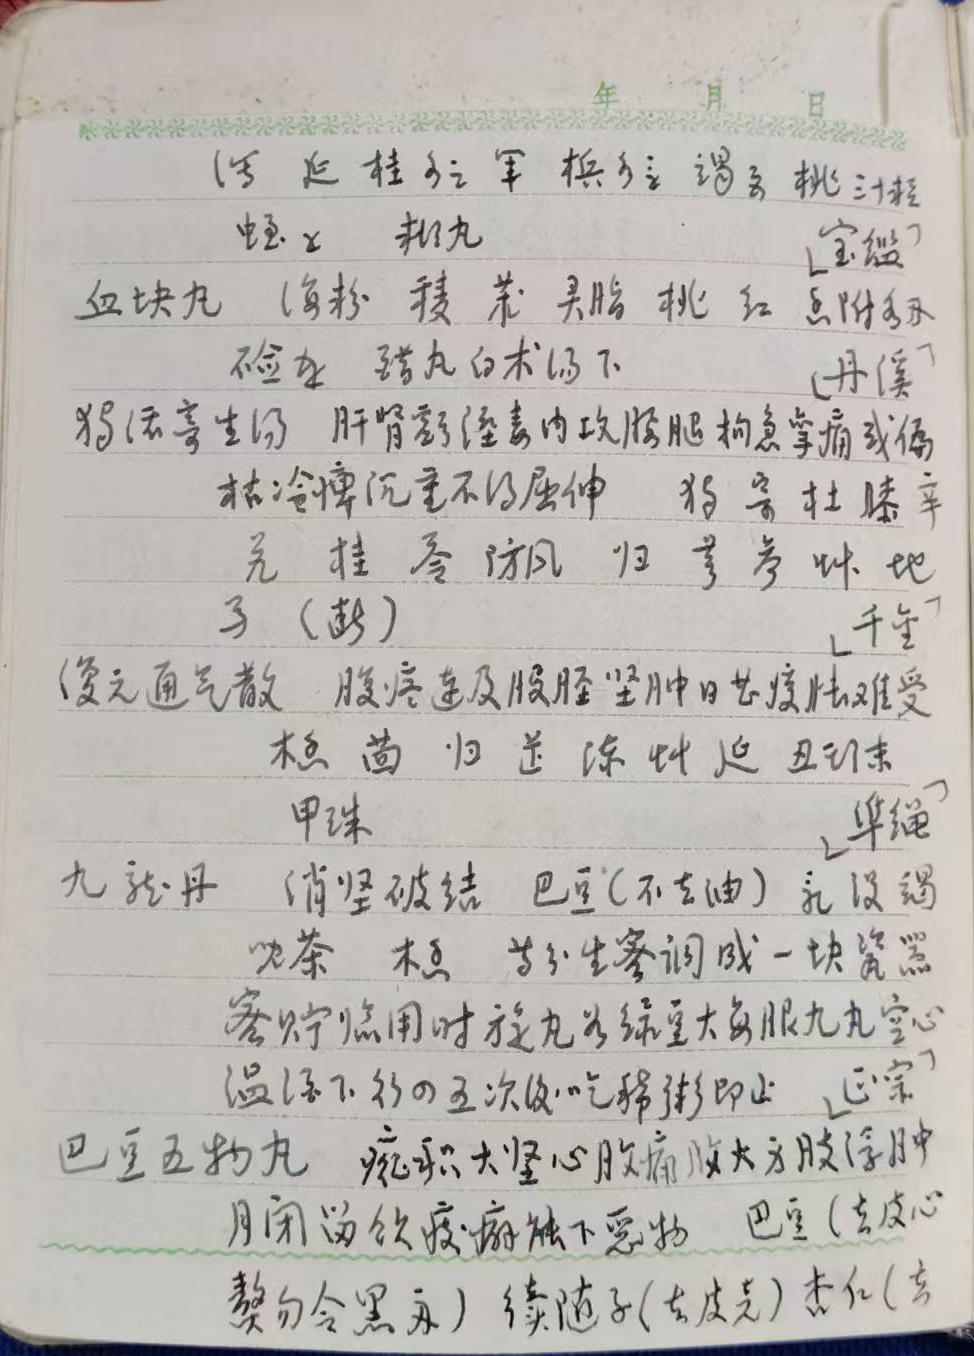 年 月 日
延 桂 军 桃
丸 「宝鉴」
血块丸 海粉 棱 莪 灵脂 桃 红 香附
醋丸白术汤下 「丹溪」
独活寄生汤 肝肾虚 内攻腰腿拘急挛痛或偏
枯冷痹沉重不得屈伸 独 寄 杜 膝 辛
艽 桂 苓 防风 归 芎 芍 草 地
「千金」
复元通气散 腹疼连及股胫坚肿 难受
木香 茴 归 楝 草 延 丑 末
甲珠 「准绳」
九龙丹 消坚破结 巴豆(不去油) 乳 没 竭
儿茶 木香 等分生蜜调成一块瓷器
密贮临用时旋丸如绿豆大每服九丸空心
温酒下行四五次后吃稀粥即止 「正宗」
巴豆五物丸 积大坚心腹痛腹大 肢浮肿
月闭留饮痰癖 下恶物 巴豆(去皮心
熬 令黑 ) 续随子(去皮壳) 杏仁(去